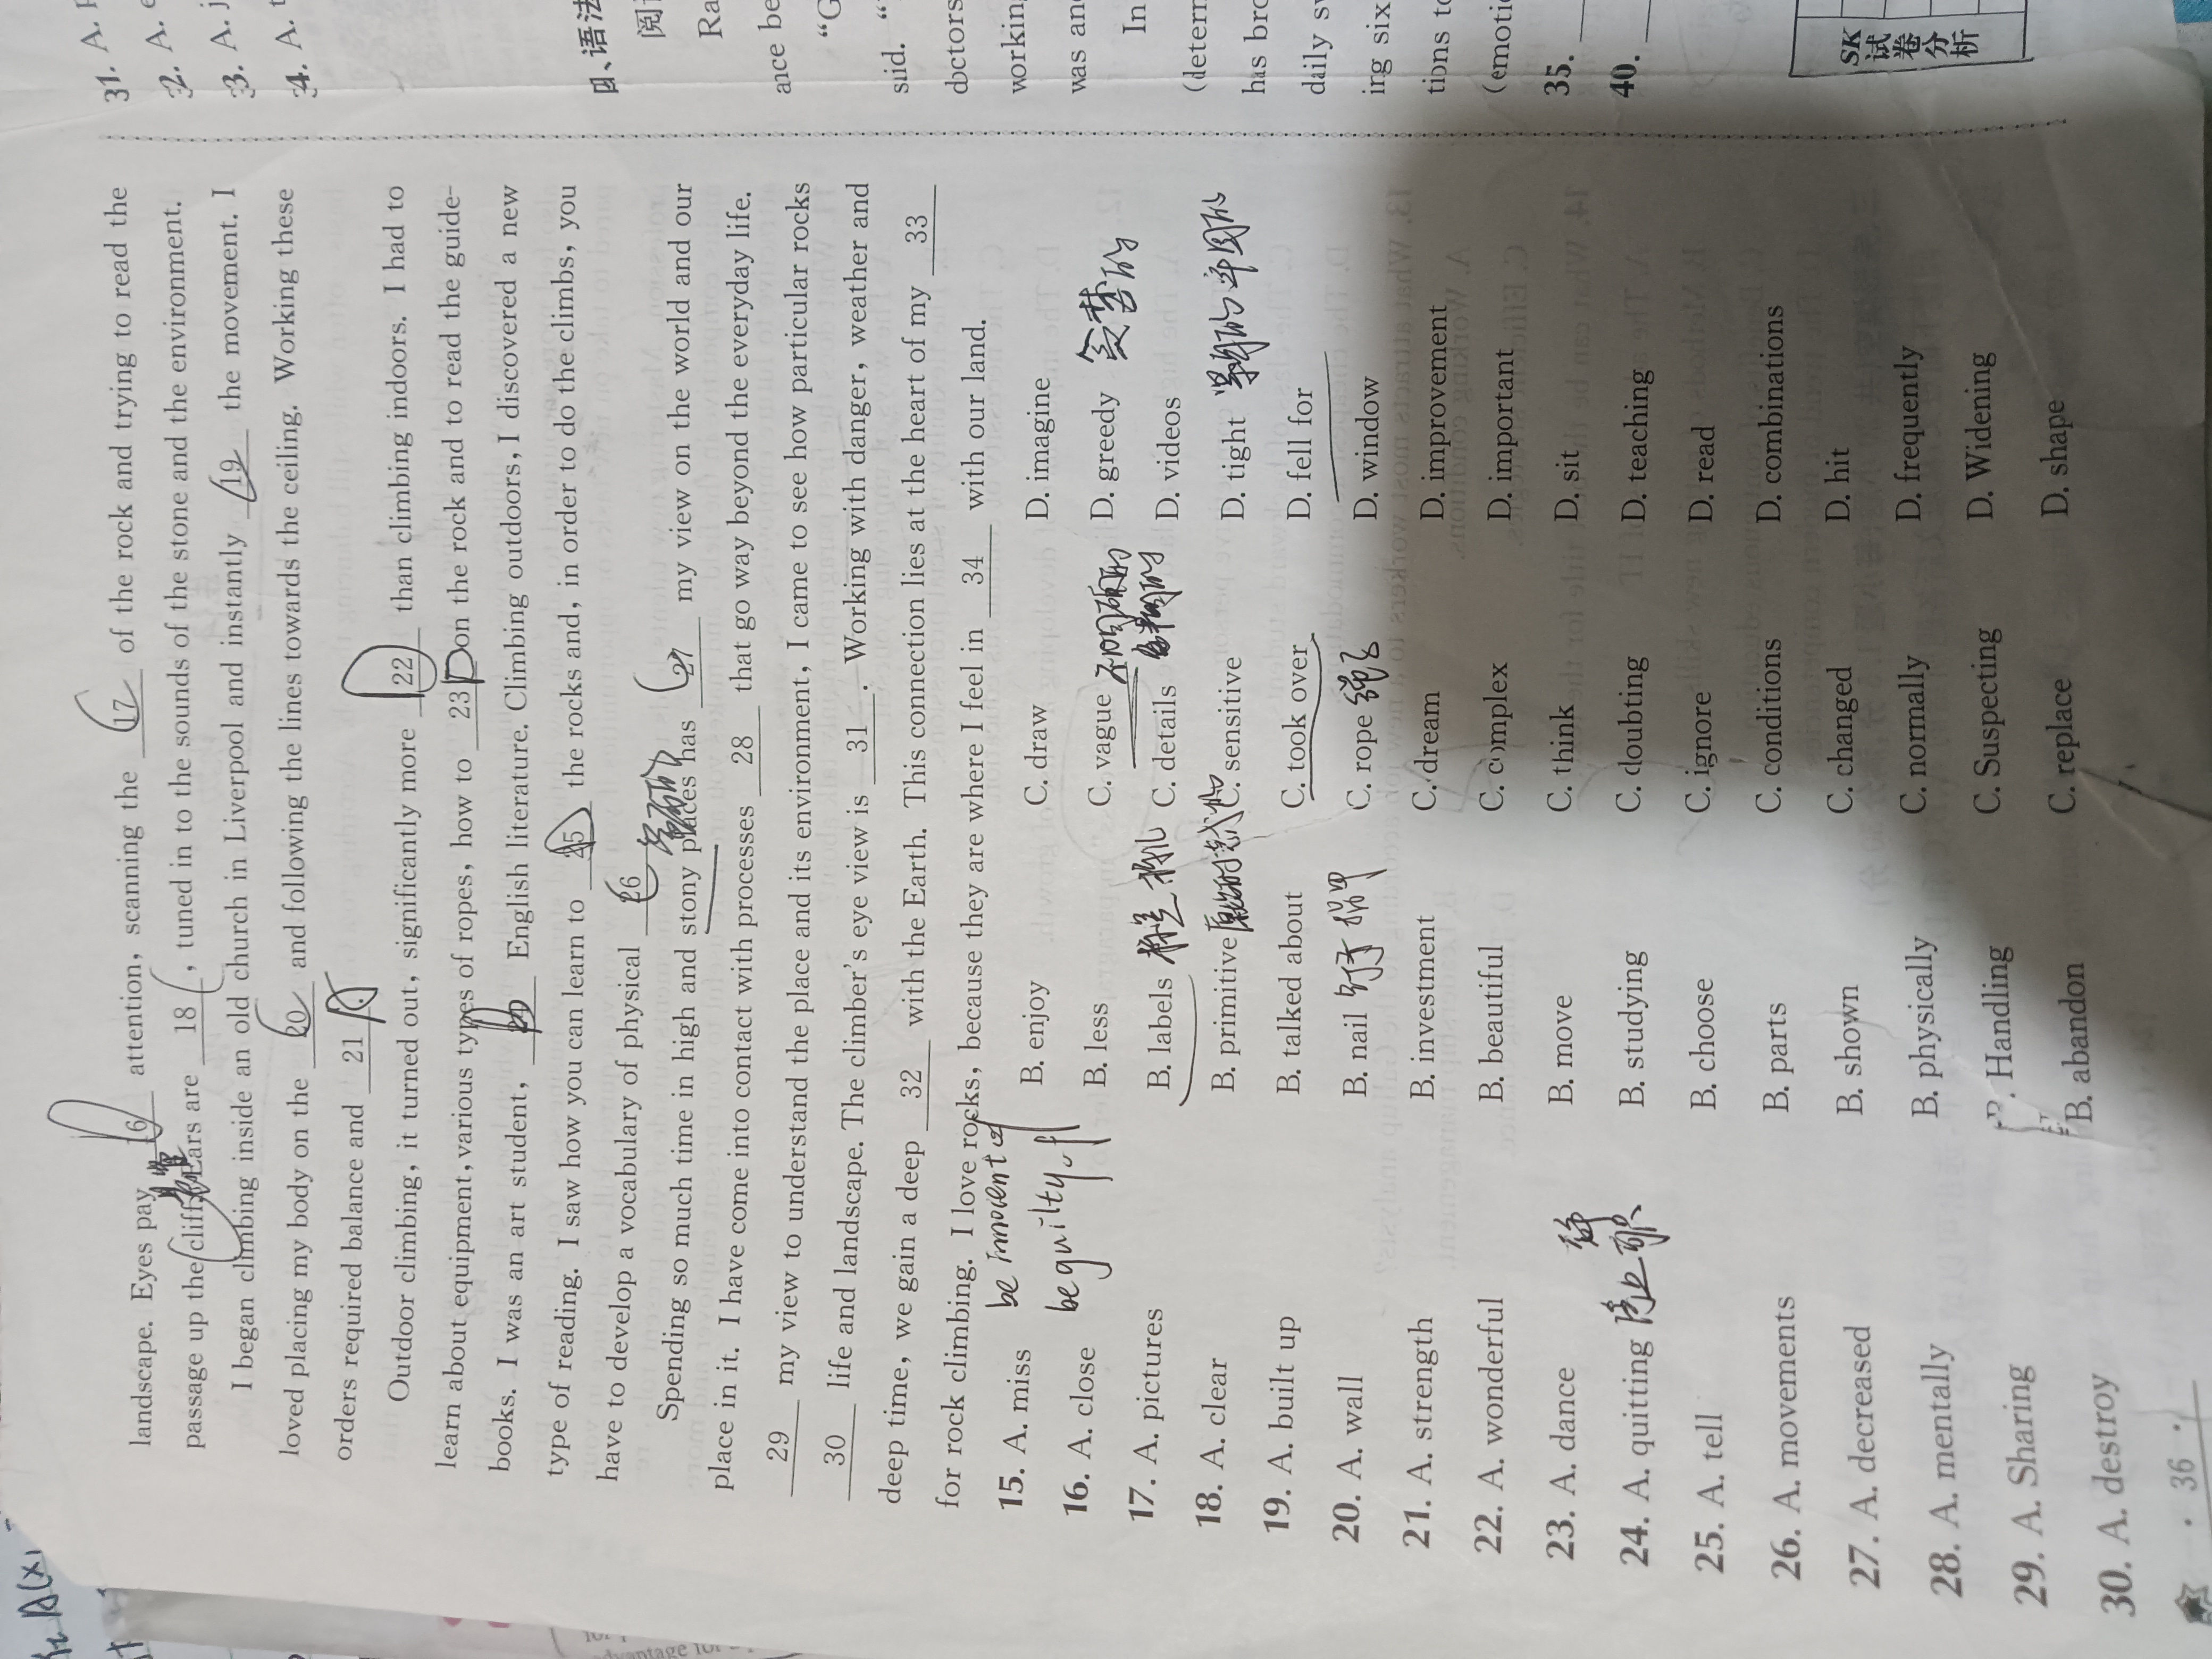 landscape. Eyes pay 16 attention, scanning the 17 of the rock and trying to read the
passage up the cliff. Ears are 18 , tuned in to the sounds of the stone and the environment.
I began climbing inside an old church in Liverpool and instantly 19 the movement. I
loved placing my body on the 20 and following the lines towards the ceiling. Working these
orders required balance and 21
Outdoor climbing, it turned out, significantly more 22 than climbing indoors. I had to
learn about equipment, various types of ropes, how to 23 D on the rock and to read the guide-
books. I was an art student, English literature. Climbing outdoors, I discovered a new
type of reading. I saw how you can learn to 25 the rocks and, in order to do the climbs, you
have to develop a vocabulary of physical 26
Spending so much time in high and stony places has 27 my view on the world and our
place in it. I have come into contact with processes 28 that go way beyond the everyday life.
29 my view to understand the place and its environment, I came to see how particular rocks
30 life and landscape. The climber's eye view is 31 . Working with danger, weather and
deep time, we gain a deep 32 with the Earth. This connection lies at the heart of my 33
for rock climbing. I love rocks, because they are where I feel in 34 with our land.
be innocent of
be guilty of
15. A. miss B. enjoy C. draw D. imagine
16. A. close B. less C. vague 不明确的 D. greedy 贪婪的
17. A. pictures B. labels 标签 C. details D. videos
18. A. clear B. primitive 原始的 C. sensitive D. tight 紧的 牢固的
19. A. built up B. talked about C. took over D. fell for
20. A. wall B. nail 钉子 指甲 C. rope 绳 D. window
21. A. strength B. investment C. dream D. improvement
22. A. wonderful B. beautiful C. complex D. important
23. A. dance B. move C. think D. sit
24. A. quitting 停止 B. studying C. doubting D. teaching
25. A. tell B. choose C. ignore D. read
26. A. movements B. parts C. conditions D. combinations
27. A. decreased B. shown C. changed D. hit
28. A. mentally B. physically C. normally D. frequently
29. A. Sharing B. Handling C. Suspecting D. Widening
30. A. destroy B. abandon C. replace D. shape
· 36 ·
31. A.
32. A.
33. A.
34. A.
四、语法
Ra
ance be
"G
said. "
doctors
working
was and
In
(detern
has bro
daily s
ing six
tions to
(emotio
35.
40.
SK
试
卷
分
析